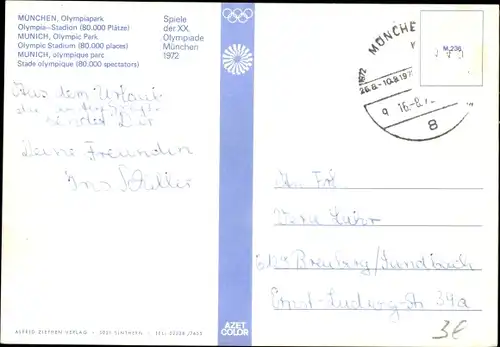 MÜNCHEN, Olympiapark
Olympia-Stadion (80.000 Plätze)
MUNICH, Olympic Park
Olympic Stadium (80.000 places)
MUNICH, olympique parc
Stade olympique (80.000 spectators)
Spiele
der XX.
Olympiade
München
1972
MÜNCHE
1972
26.8.-10.9.19
16.-8.
8
M 236
Aus dem Urlaub
sendet Dir
Deine Freundin
An Frl
Vera
Breuberg/Sandbach
Ernst-Ludwig-Str 39a
ALFRED ZIETHEN VERLAG · 5021 SINTHERN · TEL:
AZET
COLOR
3€